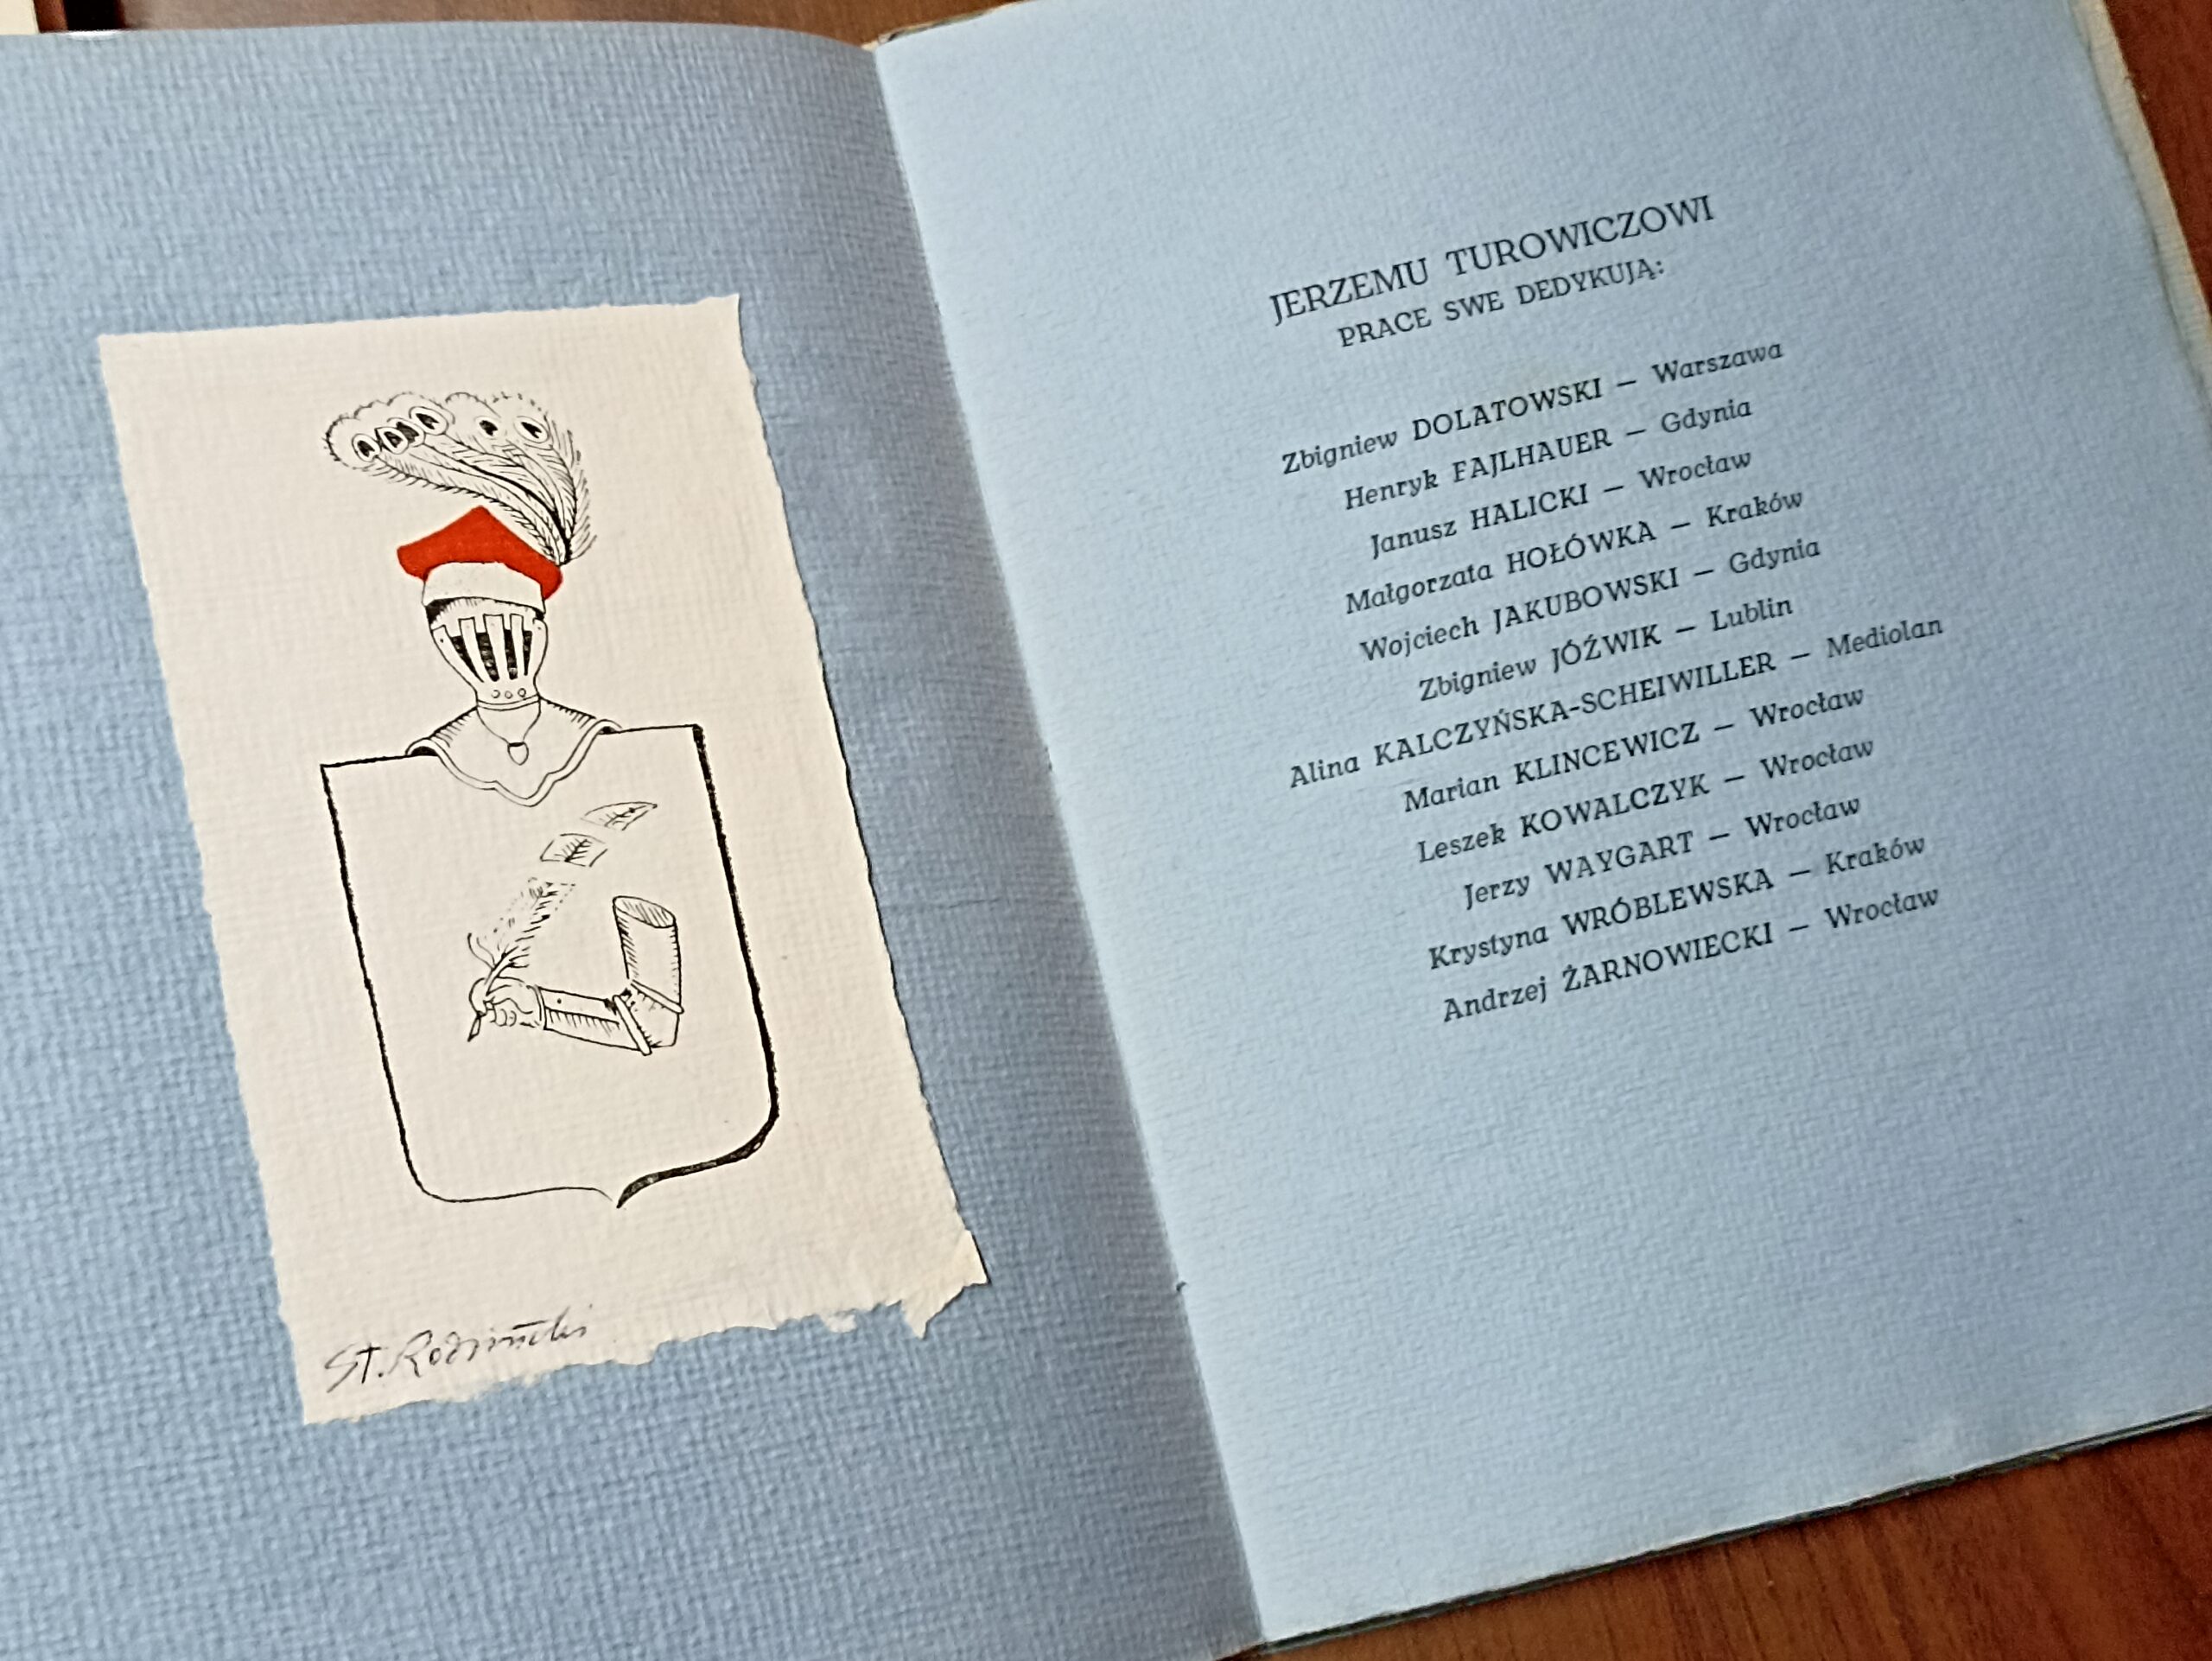 St. Rodziński
JERZEMU TUROWICZOWI
PRACE SWE DEDYKUJĄ:
Zbigniew DOLATOWSKI — Warszawa
Henryk FAJLHAUER — Gdynia
Janusz HALICKI — Wrocław
Małgorzata HOŁÓWKA — Kraków
Wojciech JAKUBOWSKI — Gdynia
Zbigniew JÓŹWIK — Lublin
Alina KALCZYŃSKA-SCHEIWILLER — Mediolan
Marian KLINCEWICZ — Wrocław
Leszek KOWALCZYK — Wrocław
Jerzy WAYGART — Wrocław
Krystyna WRÓBLEWSKA — Kraków
Andrzej ŻARNOWIECKI — Wrocław